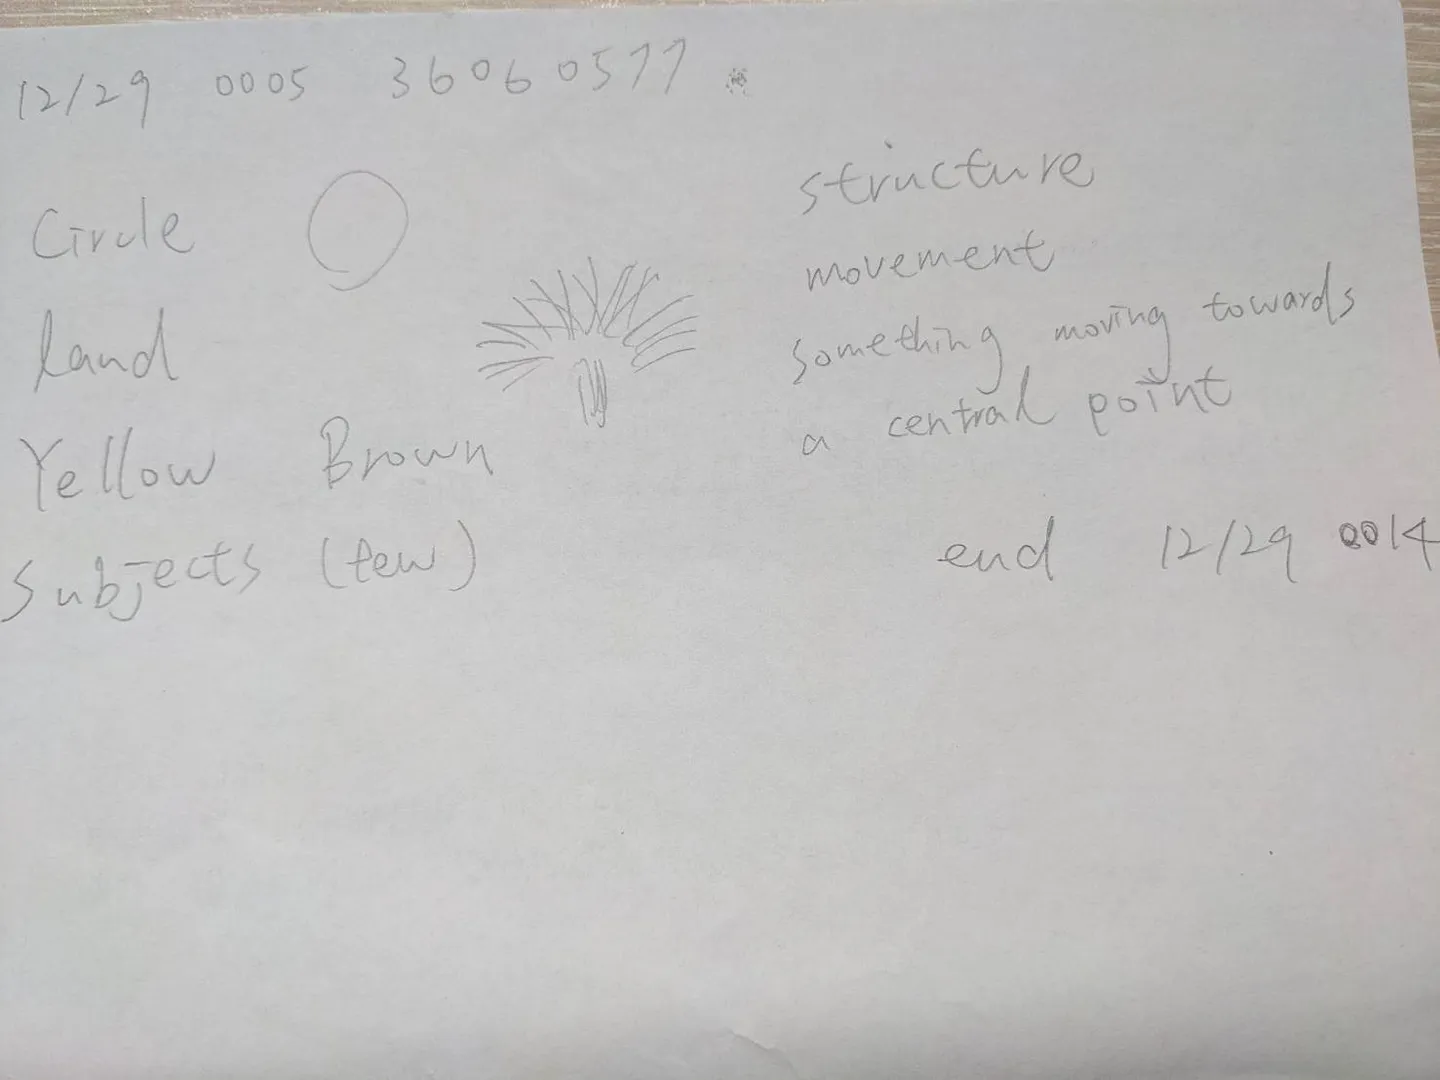 12/29 0005 36060577
Circle
land
Yellow Brown
Subjects (few)
structure
movement
something moving towards
a central point
end 12/29 0014